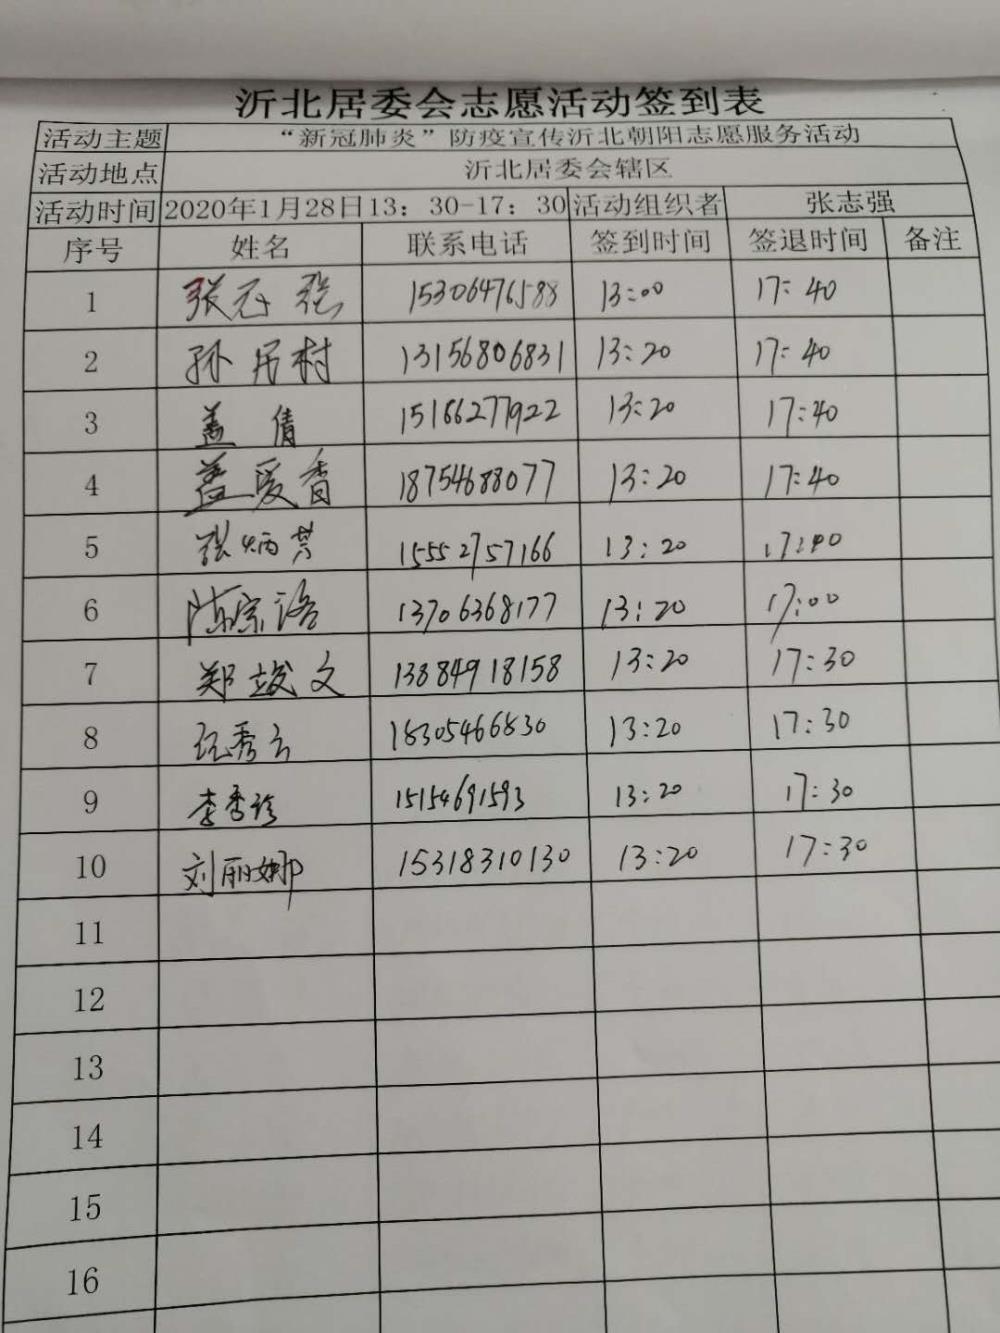 沂北居委会志愿活动签到表
活动主题 “新冠肺炎”防疫宣传沂北朝阳志愿服务活动
活动地点 沂北居委会辖区
活动时间 2020年1月28日13：30-17：30 活动组织者 张志强
序号 姓名 联系电话 签到时间 签退时间 备注
1 张志强 15306476588 13:00 17:40
2 孙居村 13156806831 13:20 17:40
3 盖倩 15166277922 13:20 17:40
4 盖爱香 18754688077 13:20 17:40
5 张炳其 15552757166 13:20
6 陈宗洛 13706368177 13:20 17:00
7 郑竣文 13884918158 13:20 17:30
8 秀云 18305466830 13:20 17:30
9 李秀珍 15154691593 13:20 17:30
10 刘丽娜 15318310130 13:20 17:30
11
12
13
14
15
16